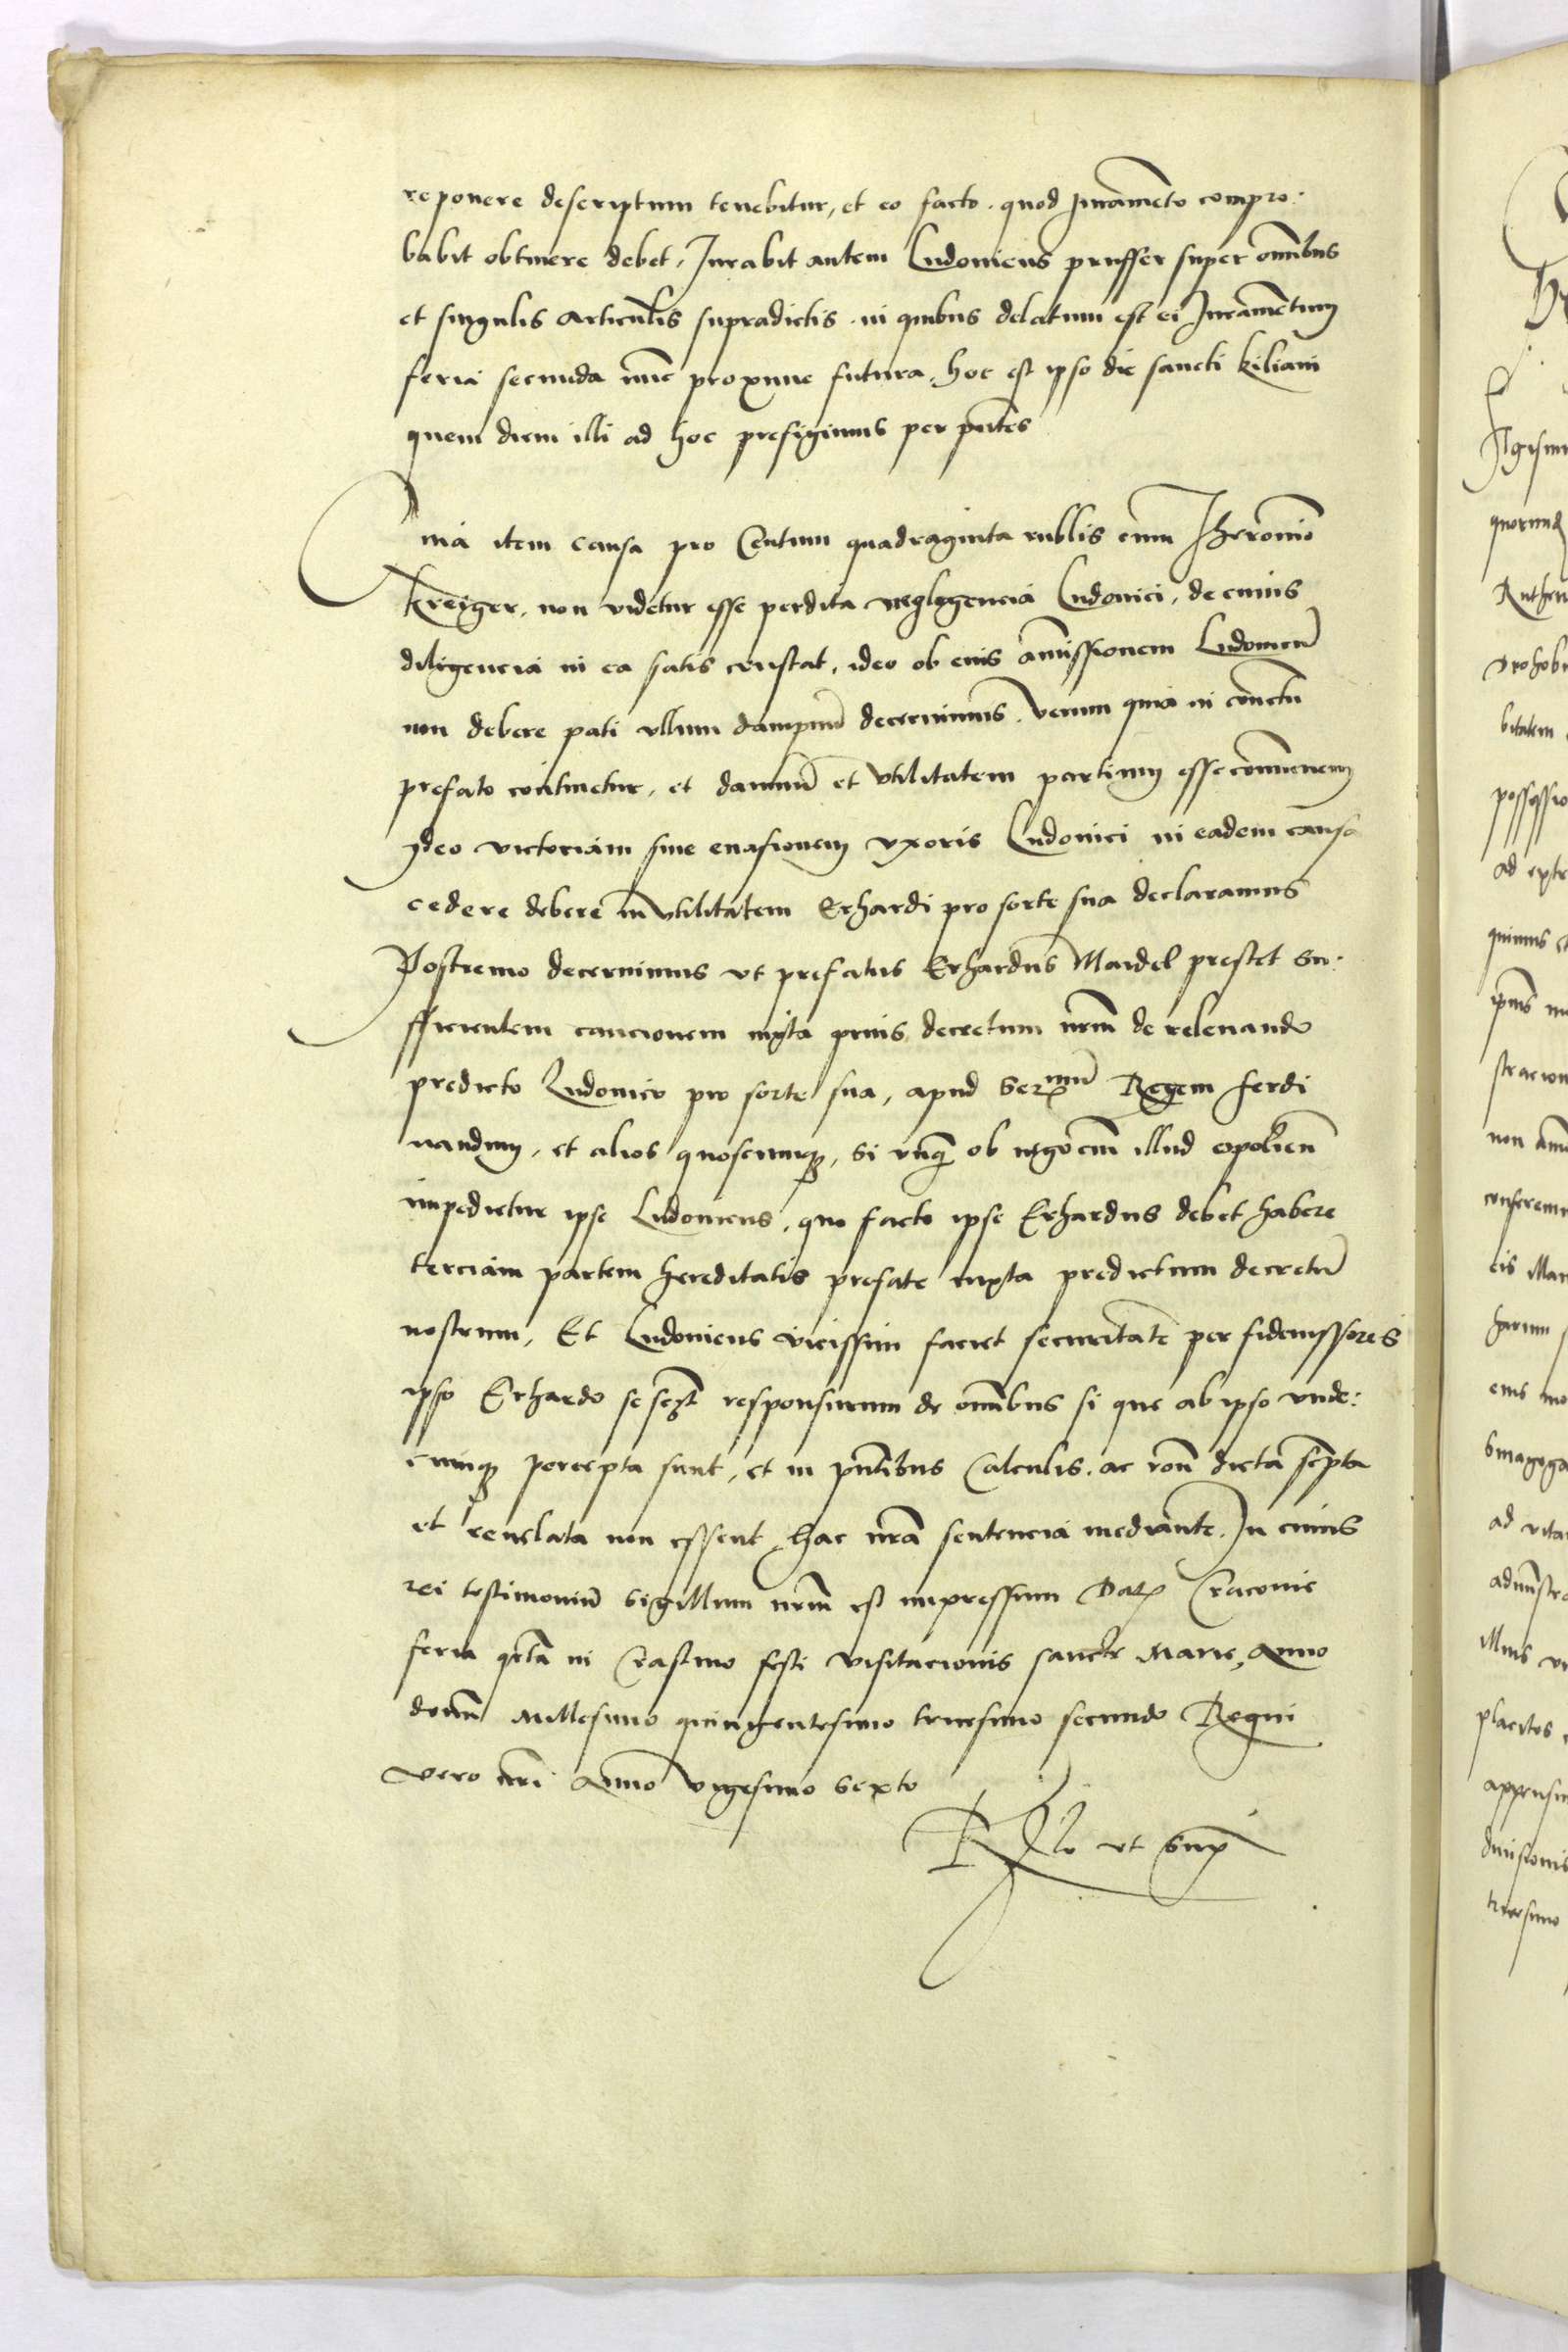 reponere descriptum tenebitur, et eo facto. quod Juramēto compro:
babit obtinere debet. Jurabit autem Ludouicus prusser super oīnibus
et singulis Articulis supradictis. in quibus delatum est ei Juramētum
feria secunda nūc proxime futura. hoc est ipso die sancti kiliani
quem diem illi ad hoc prefigimus per pn̄tes
Quia item causa pro Centum quadraginta rublis cum Iheronīo
Kreiger. non videtur esse perdita negligencia Ludouici, de cuius
diligencia in ea satis constat, ideo ob eius amissionem Ludouicū
non debere pati vllum dampnū decernimus. Verum quia in cōtractu
prefato continetur, et damnū et vtilitatem partium esse cōmunem
ydeo victoriam siue euasionem vxoris Ludouici in eadem causa
cedere debere in vtilitatem Erhardi pro sorte sua declaramus
Postremo decernimus vt prefatus Erhardus Maidel prestet su:
fficientem caucionem iuxta prius decretum nrm̄ de releuando
predicto Ludouico pro sorte sua, apud Serᵐᵘᵐ Regem ferdi
nandum, et alios quoscunq3, si vnq̄ ob negociū illud
impedietur ipse Ludouicus, quo facto ipse Erhardus debet habere
terciam partem hereditatis prefate iuxta predictum decretū
nostrum, Et Ludouicus vicissim faciet securitatē per fideiussores
ipso Erhardo se responsurum de oīnibus si que ab ipso vnde:
cunq3 percepta sunt, et in pn̄tibus Calculis. ac
et reuelata non essent, hac nrā sentencia mediante. In cuius
rei testimoniū sigillum nrm̄ est impressum Datʒ Cracouie
feria q̄rta in Crastino festi visitacionis sancte Marie, Anno
domī Millesimo quingentesimo tricesimo secundo Regni
vero nrī Anno vigesimo sexto
Rlo vt supʳ